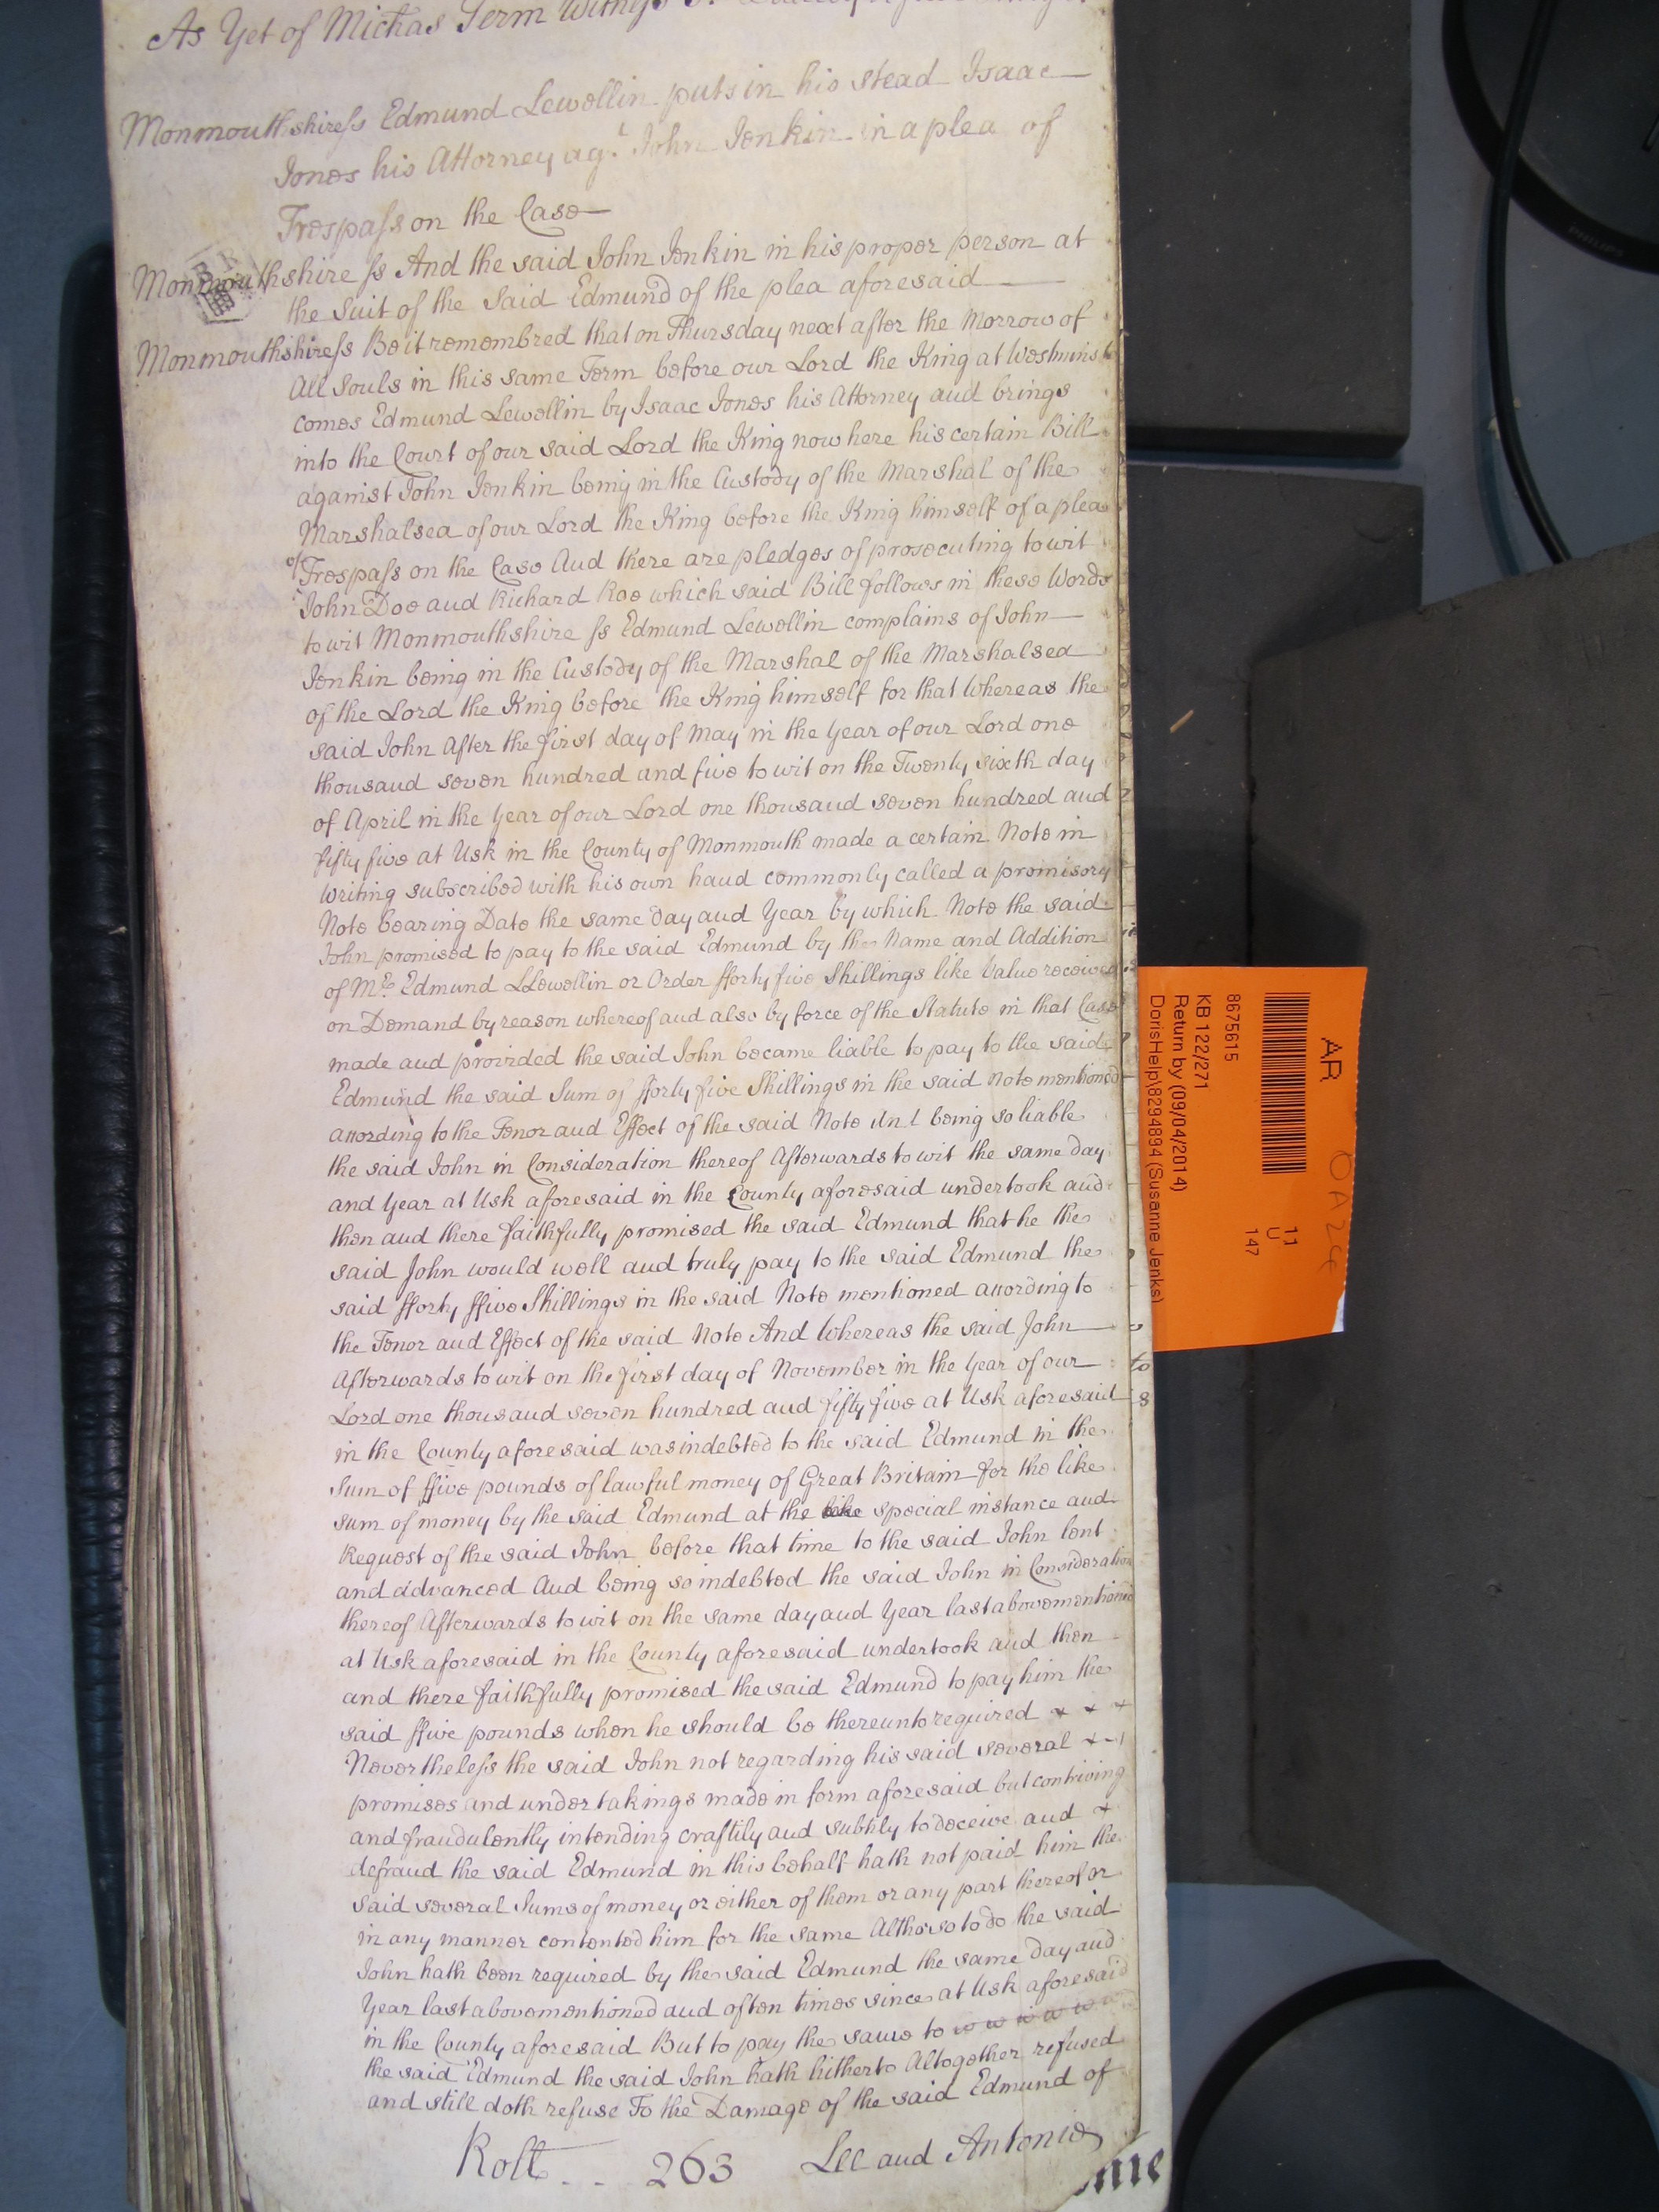 As Yet of Michas Term Witness
Monmouthshire ss Edmund Lewellin puts in his stead Isaac
Jones his Attorney agt. John Jenkin in a plea of
Trespass on the Case
Monmouthshire ss And the said John Jenkin in his proper person at
the Suit of the Said Edmund of the plea aforesaid
Monmouthshire ss Be it remembred that on Thursday next after the Morrow of
All Souls in this same Term before our Lord the King at Westminst
comes Edmund Lewellin by Isaac Jones his Attorney and brings
into the Court of our said Lord the King now here his certain Bill
against John Jenkin being in the Custody of the Marshal of the
Marshalsea of our Lord the King before the King himself of a plea
of Trespass on the Case And there are pledges of prosecuting to wit
John Doe and Richard Roe which said Bill follows in these Words
to wit Monmouthshire ss Edmund Lewellin complains of John
Jenkin being in the Custody of the Marshal of the Marshalsea
of the Lord the King before the King himself for that Whereas the
said John After the first day of May in the Year of our Lord one
thousand seven hundred and five to wit on the Twenty sixth day
of April in the Year of our Lord one thousand seven hundred and
fifty five at Usk in the County of Monmouth made a certain Note in
Writing subscribed with his own hand commonly called a promisory
Note bearing Date the same day and Year by which Note the said
John promised to pay to the said Edmund by the Name and Addition
of Mr. Edmund LLewellin or Order fforty five Shillings like Value received
on Demand by reason whereof and also by force of the Statute in that Case
made and provided the said John became liable to pay to the said
Edmund the said Sum of fforty five Shillings in the said Note mentioned
according to the Tenor and Effect of the said Note And being so liable
the said John in Consideration thereof Afterwards to wit the same day
and Year at Usk aforesaid in the County aforesaid undertook and
then and there faithfully promised the said Edmund that he the
said John would well and truly pay to the said Edmund the
said fforty ffive Shillings in the said Note mentioned according to
the Tenor and Effect of the said Note And Whereas the said John
Afterwards to wit on the first day of November in the Year of our
Lord one thousand seven hundred and fifty five at Usk aforesaid
in the County aforesaid was indebted to the said Edmund in the
Sum of ffive pounds of lawful money of Great Britain for the like
sum of money by the said Edmund at the like special instance and
Request of the said John before that time to the said John lent
and advanced And being so indebted the said John in Consideration
thereof Afterwards to wit on the same day and Year last abovementioned
at Usk aforesaid in the County aforesaid undertook and then
and there faithfully promised the said Edmund to pay him the
said ffive pounds when he should be thereunto required
Nevertheless the said John not regarding his said several
promises and undertakings made in form aforesaid but contriving
and fraudulently intending craftily and subtily to deceive and
defraud the said Edmund in this behalf hath not paid him the
said several Sums of money or either of them or any part thereof or
in any manner contented him for the same Altho so to do the said
John hath been required by the said Edmund the same day and
Year last abovementioned and often times since at Usk aforesaid
in the County aforesaid But to pay the same to
the said Edmund the said John hath hitherto Altogether refused
and still doth refuse To the Damage of the said Edmund of
Roll 263 Lee and Antonie
AR
8675615
KB 122/271
Return by (09/04/2014)
DorisHelp\8294894 (Susanne Jenks)
11
U
147